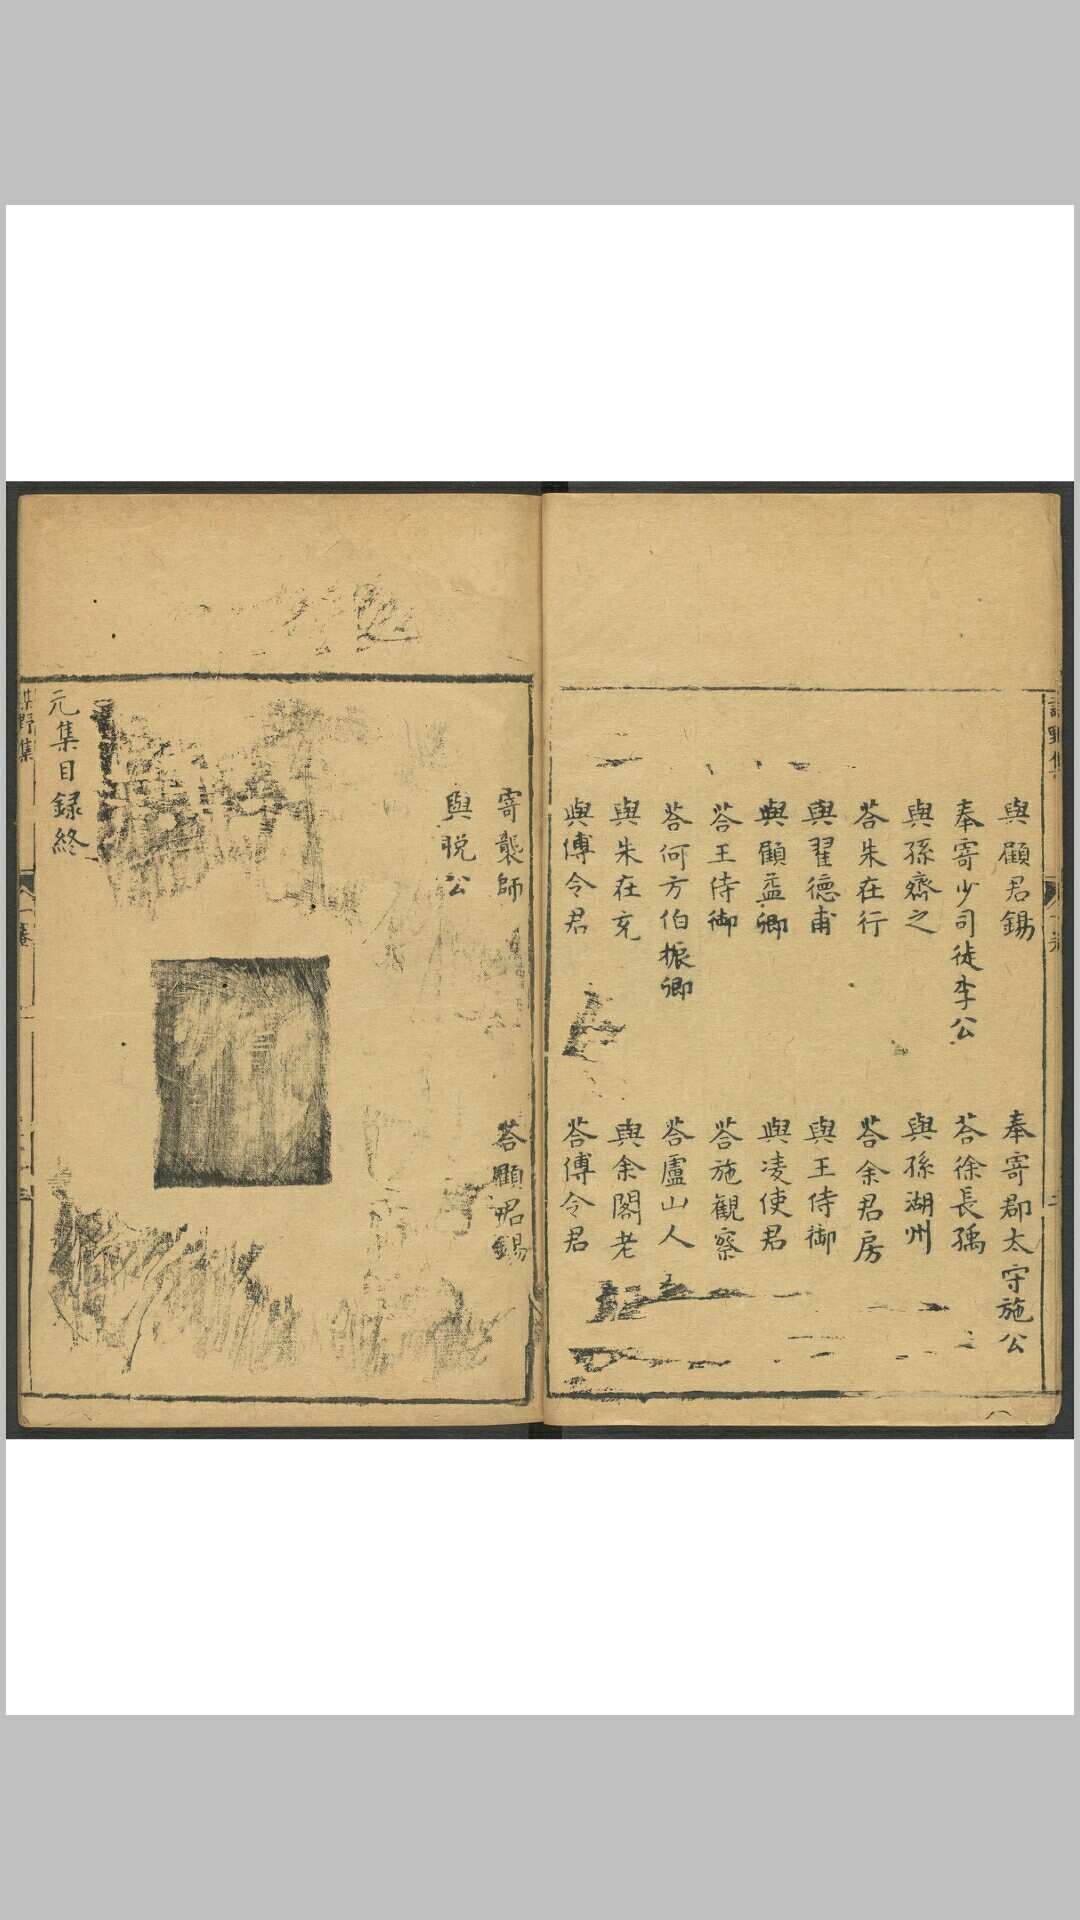 與顧君錫
奉寄郡太守施公
奉寄少司徒李公
荅徐長孺
與孫齋之
與孫湖州
荅朱在行
荅余君房
與翟德甫
與王侍御
與顧孟卿
與凌使君
荅王侍御
荅施觀察
荅何方伯振卿
荅盧山人
與朱在充
與余閣老
與傅令君
荅傅令君
寄襲師
荅顧君錫
與脱公
元集目録終
野集